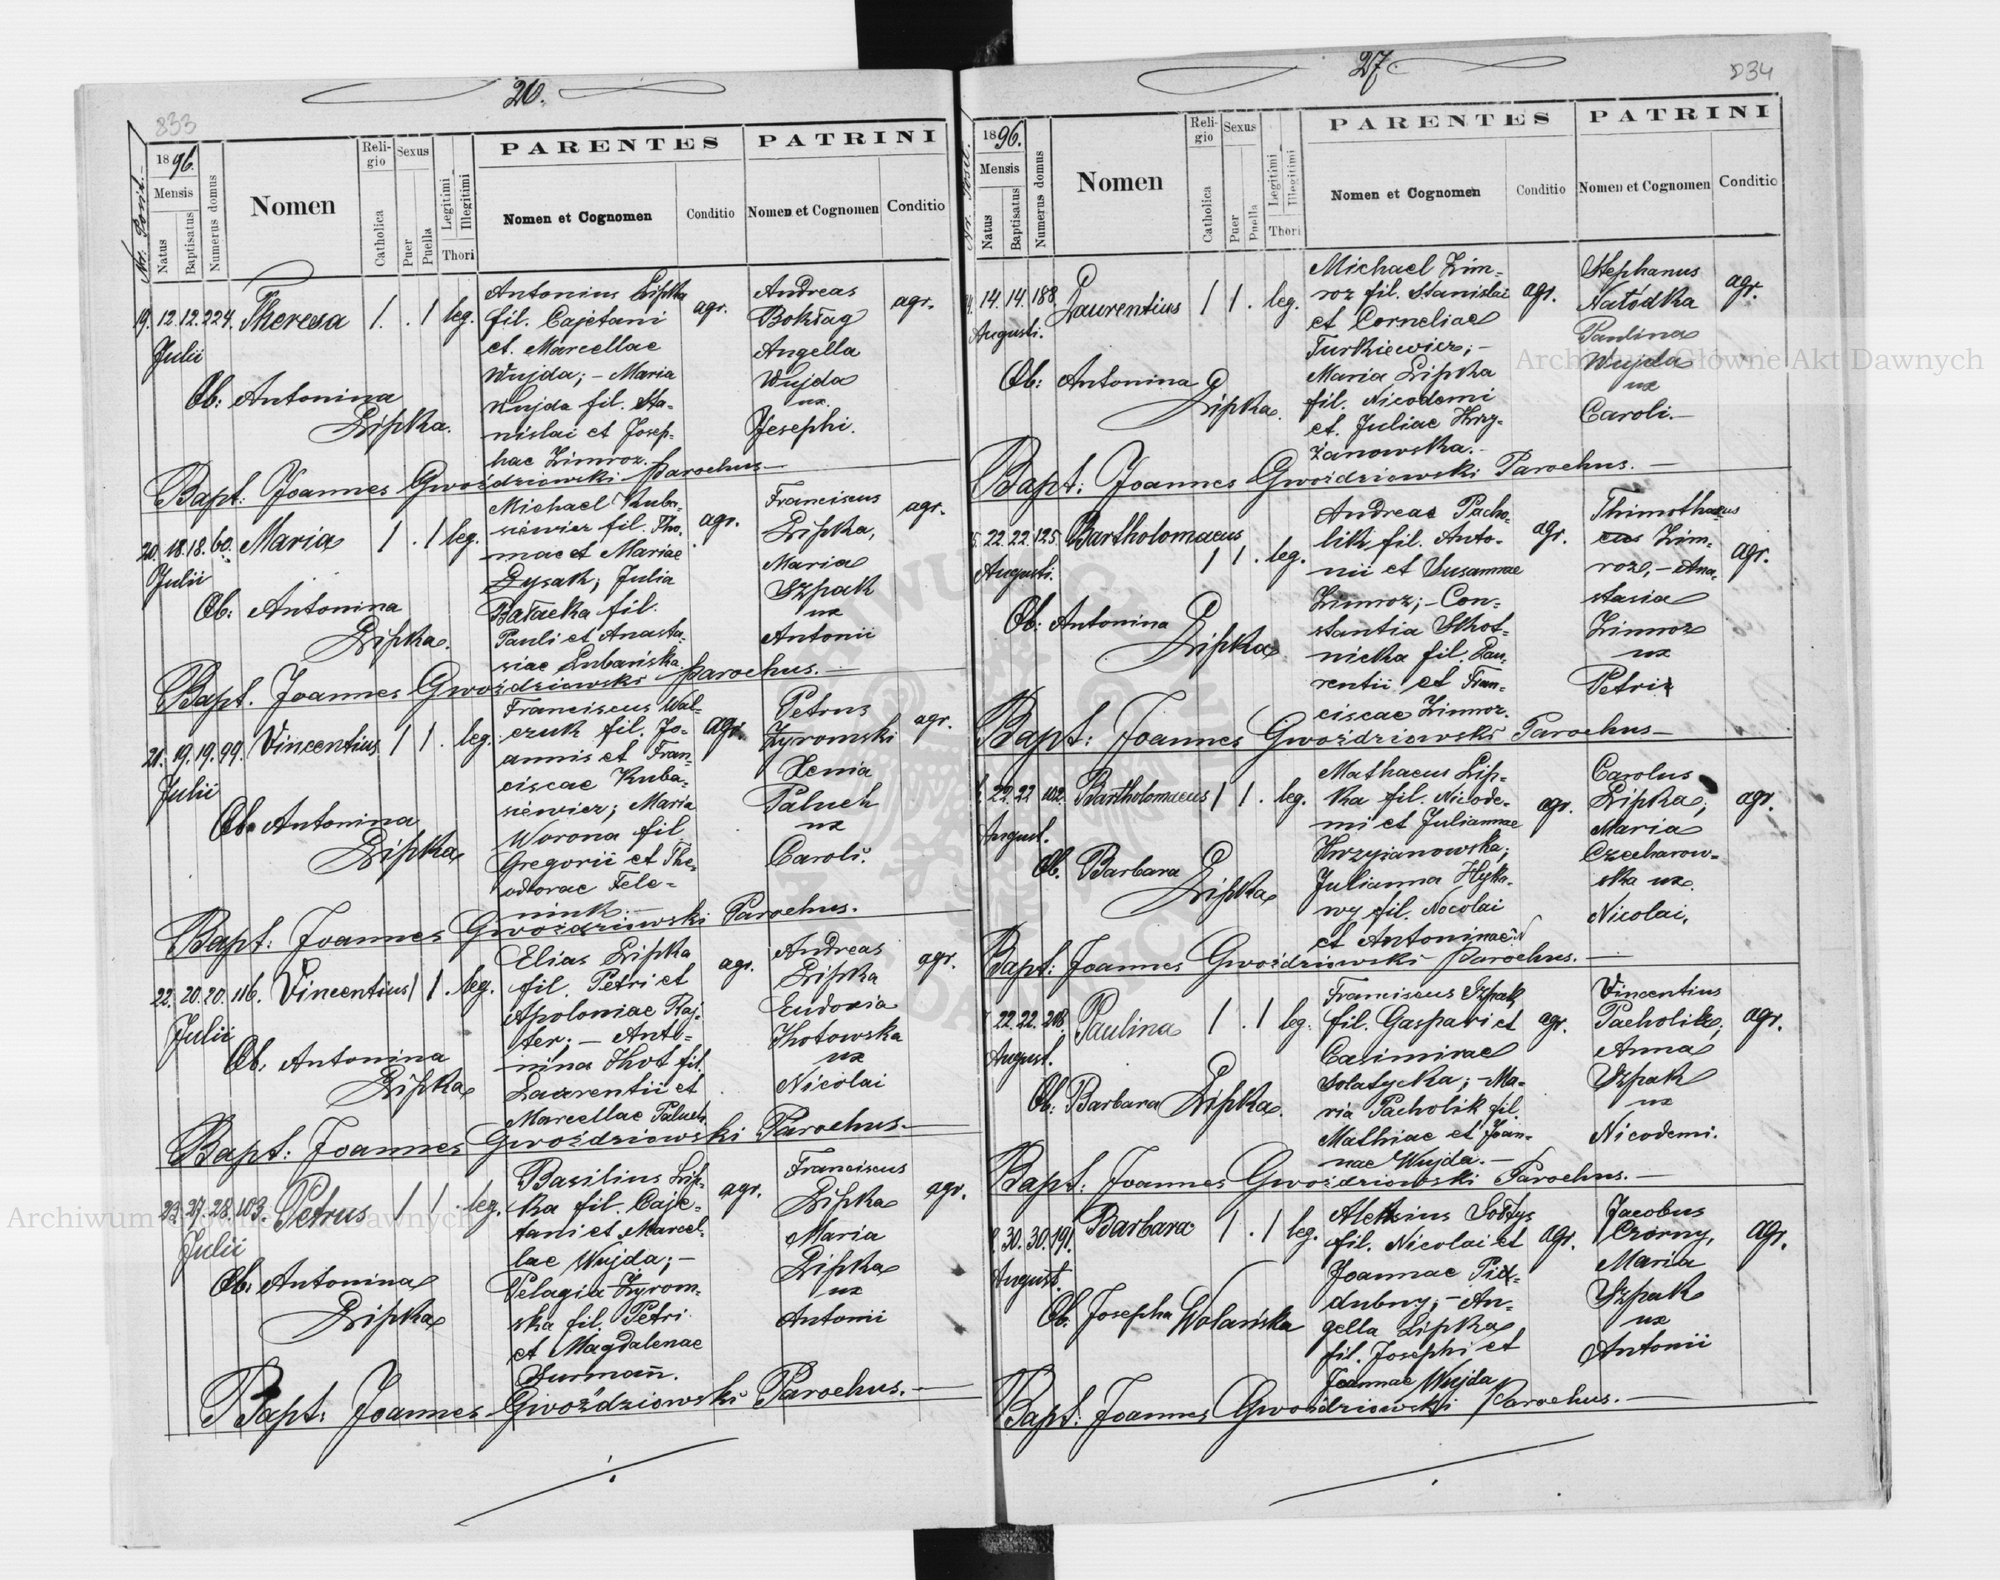 26.
833
Nr. Posit.
1896.
Mensis
Natus
Baptisatus
Numerus domus
Nomen
Reli-
gio
Catholica
Sexus
Puer
Puella
Legitimi
Illegitimi
Thori
PARENTES
Nomen et Cognomen
Conditio
PATRINI
Nomen et Cognomen
Conditio
19. 12. 12. 224. Theresa 1. . 1 leg.
Julii
Ob: Antonina
Lipka.
Antonius Lipka
fil. Cajetani
et Marcellae
Wujda; – Maria
Wujda fil. Sta-
nislai et Josep-
hae Zimroz.
agr.
Andreas
Bokłag
Angella
Wujda
ux.
Josephi.
agr.
Bapt: Joannes Gwoździowski Parochus –
20. 18. 18. 60. Maria 1 . 1 leg.
Julii
Ob: Antonina
Lipka.
Michael Kuba-
siewicz fil. Tho-
mae et Mariae
Łysak; Julia
Bałacka fil.
Pauli et Anasta-
siae Lubańska
agr.
Franciscus
Lipka,
Maria
Szpak
ux
Antonii
agr.
Bapt. Joannes Gwoździowski Parochus. –
21. 19. 19. 99. Vincentius 1 1 . leg.
Julii
Ob: Antonina
Lipka
Franciscus Wal-
czuk fil. Jo-
annis et Fran-
ciscae Kuba-
siewicz; Maria
Worona fil
Gregorii et The-
odorae Fele-
niuk. –
agr.
Petrus
Żyromski
Xenia
Paluch
ux
Caroli.
agr.
Bapt: Joannes Gwoździowski Parochus.
22. 20. 20. 116. Vincentius 1 1 . leg.
Julii
Ob: Antonina
Lipka
Elias Lipka
fil. Petri et
Apoloniae Raj-
ter; – Anto-
nina Khot fil.
Laurentii et
Marcellae Paluch.
agr.
Andreas
Lipka
Eudoxia
Khotowska
ux
Nicolai
agr.
Bapt: Joannes Gwoździowski Parochus –
23. 27. 28. 103. Petrus 1 1 . leg.
Julii
Ob: Antonina
Lipka
Basilius Lip-
ka fil. Caje-
tani et Marcel-
lae Wujda; –
Pelagia Żyrom-
ska fil. Petri
et Magdalenae
Surman.
agr.
Franciscus
Lipka
Maria
Lipka
ux
Antonii
agr.
Bapt: Joannes Gwoździowski Parochus. –
27.
1896.
Mensis
Natus
Baptisatus
Numerus domus
Nomen
Reli-
gio
Catholica
Sexus
Puer
Puella
Legitimi
Illegitimi
Thori
PARENTES
Nomen et Cognomen
Conditio
PATRINI
Nomen et Cognomen
Conditio
14. 14. 188. Laurentius 1 1 . leg.
Augusti.
Ob: Antonina
Lipka.
Michael Zim-
roz fil. Stanislai
et Corneliae
Turkiewicz; –
Maria Lipka
fil. Nicodemi
et Juliae Krzy-
żanowska. –
agr.
Stephanus
Nałódka
Paulina
Wujda
ux
Caroli. –
agr.
Bapt: Joannes Gwoździowski Parochus. –
22. 22. 125. Bartholomaeus
1 1 . leg.
Augusti.
Ob: Antonina
Lipka
Andreas Pacho-
lik fil. Anto-
nii et Susannae
Zimroz; – Con-
stantia Skot-
nicka fil. Lau-
rentii et Fran-
ciscae Zimroz.
agr.
Thimothaeus
Zim-
roz, – Ana-
stasia
Zimroz
ux
Petri
agr.
Bapt: Joannes Gwoździowski Parochus –
22. 22 102. Bartholomaeus 1 1 . leg.
August.
Ob. Barbara
Lipka
Mathaeus Lip-
ka fil. Nicode-
mi et Juliannae
Krzyżanowska;
Julianna Hyka-
wy fil. Nicolai
et Antoninae
agr.
Carolus
Lipka;
Maria
Czecharow-
ska ux.
Nicolai.
agr.
Bapt: Joannes Gwoździowski Parochus. –
22. 22. 218. Paulina 1 . 1 leg.
August.
Ob: Barbara Lipka.
Franciscus Szpak
fil. Gaspari et
Casimirae
Solatycka; – Ma-
ria Pacholik fil.
Mathiae et Joan-
nae Wujda. –
agr.
Vincentius
Pacholik;
Anna
Szpak
ux
Nicodemi.
agr.
Bapt: Joannes Gwoździowski Parochus. –
30. 30. 191. Barbara 1 . 1 leg.
August.
Ob. Josepha Wolańska
Aleksius Sołtys
fil. Nicolai et
Joannae Pid-
dubny; – An-
gella Lipka
fil. Josephi et
Joannae Wujda
agr.
Jacobus
Czorny,
Maria
Szpak
ux
Antonii
agr.
Bapt: Joannes Gwoździowski Parochus. –
Archiwum Główne Akt Dawnych
Archiwum Główne Akt Dawnych